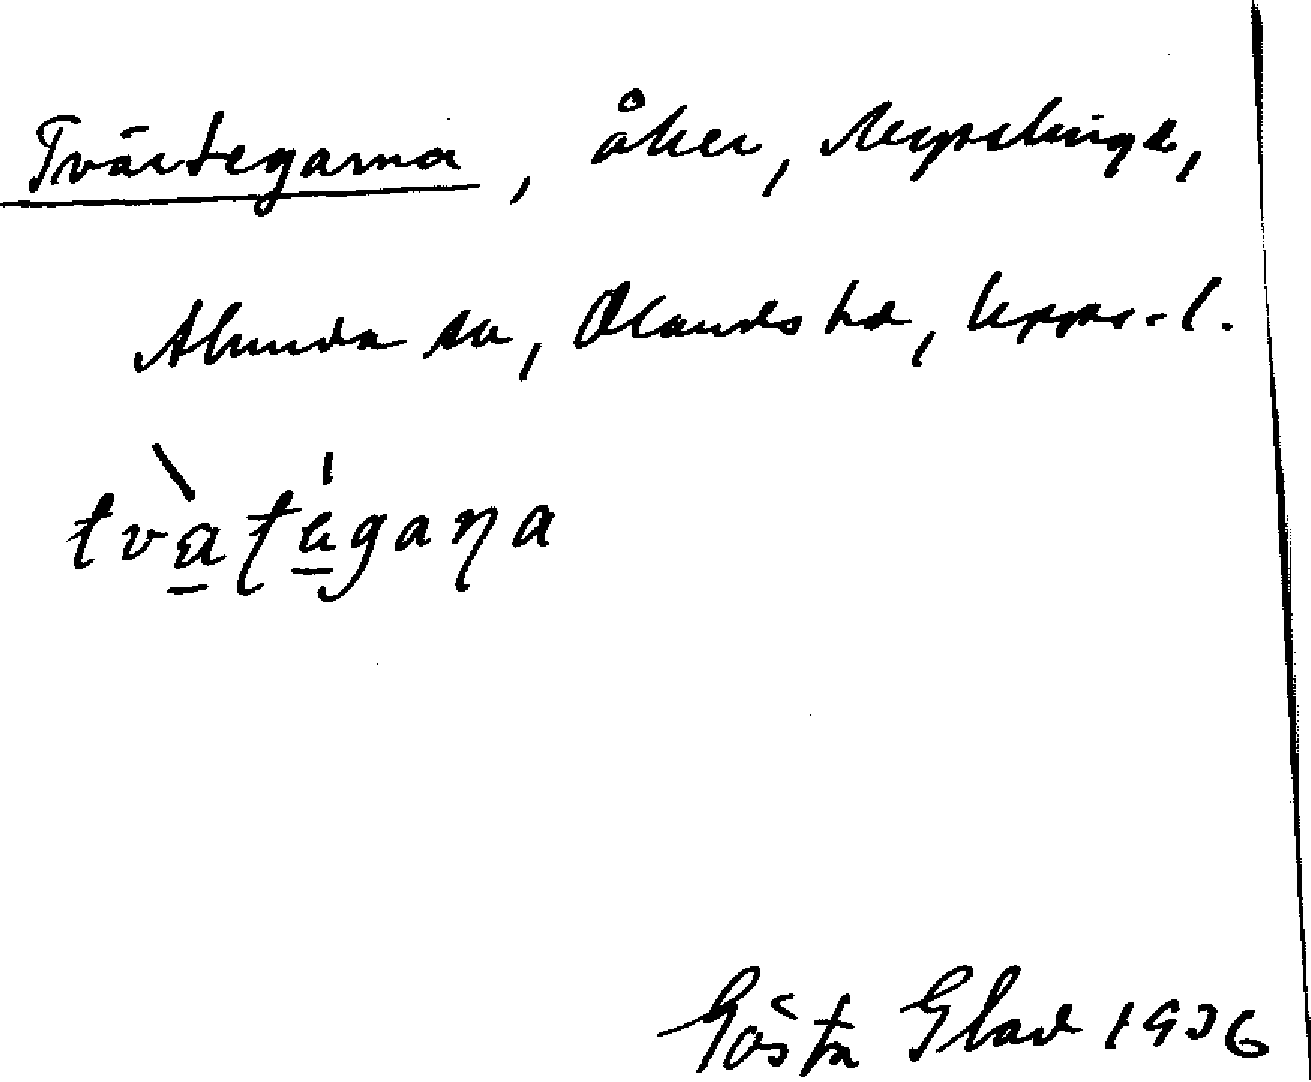 Tvärtegarna, åker, Uppslinge,
Alunda sn, Olands hd, Upps. l.
tvä̀ʈä́gaɳa
Gösta Glad 1936